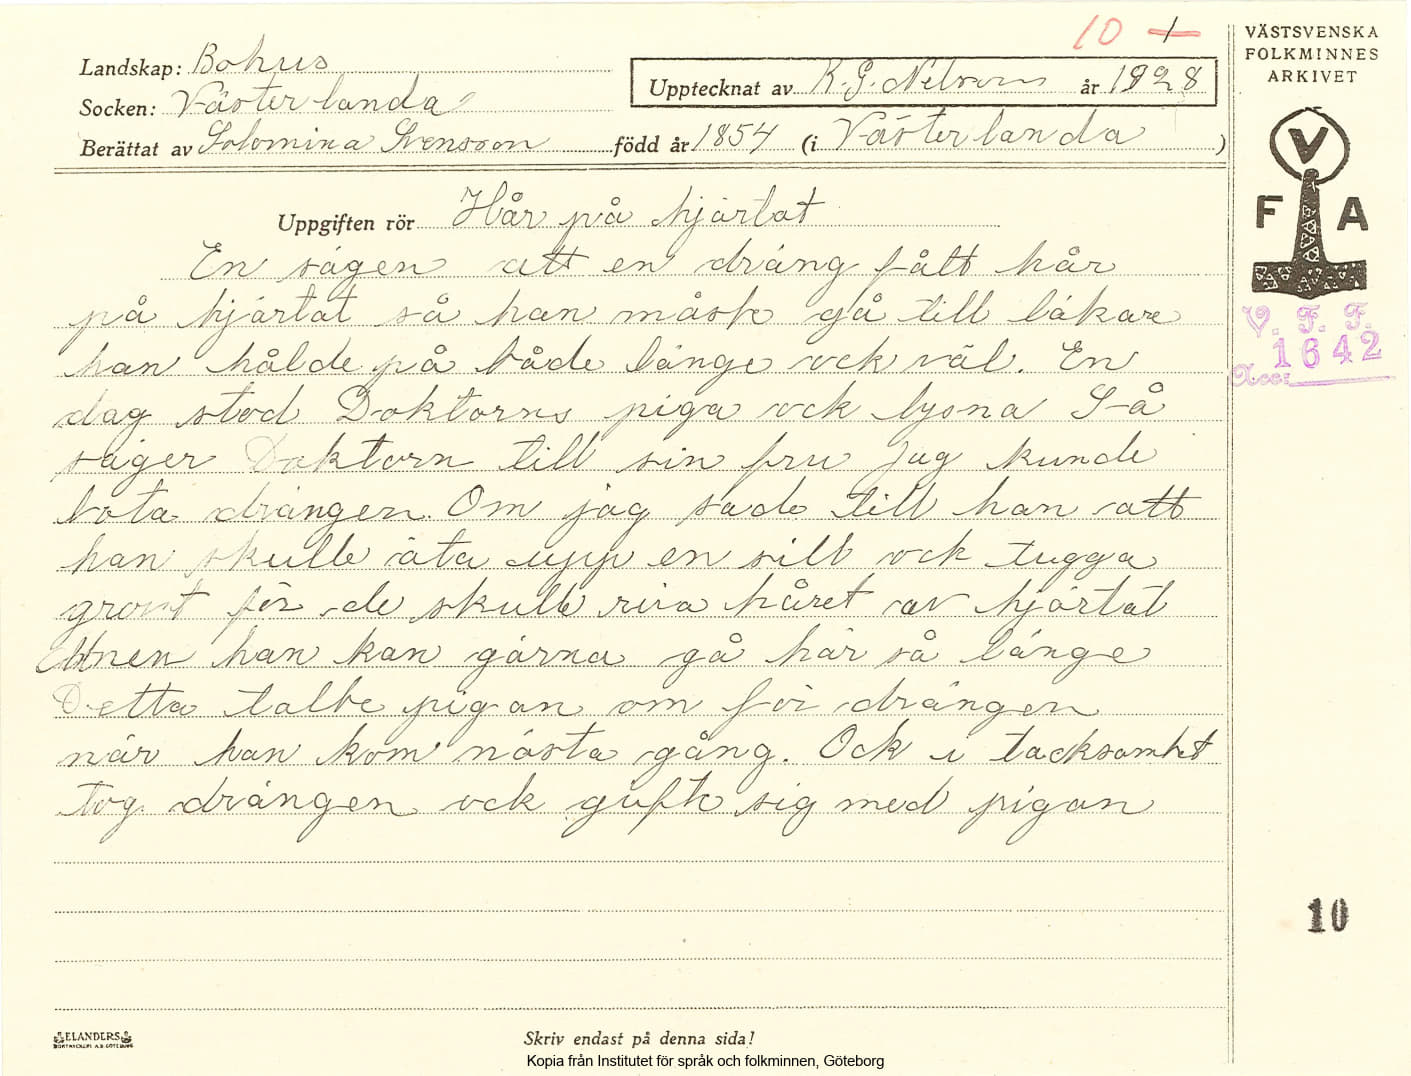 10 +
Landskap: Bohus
Upptecknat av K. G. Nelson år 1928
Socken: Västerlanda
Berättat av Solomina Svensson född år 1854 (i Västerlanda )
Uppgiften rör Hår på hjärtat
En sägen att en dräng fått hår
på hjärtat så han måste gå till läkare
han hålde på både länge ock väl. En
dag stod Doktorns piga ock lysna Så
säger Doktorn till sin fru jag kunde
bota drängen. Om jag sade till han att
han skulle äta upp en sill ock tugga
grovt för de skulle riva håret av hjärtat
Men han kan gärna gå här så länge
Detta talte pigan om för drängen
när han kom nästa gång. Ock i tacksamhet
tog drängen ock gifte sig med pigan
Skriv endast på denna sida!
ELANDERS
Kopia från Institutet för språk och folkminnen, Göteborg
VÄSTSVENSKA
FOLKMINNES
ARKIVET
V
F A
V. F. F.
Acc: 1642
10